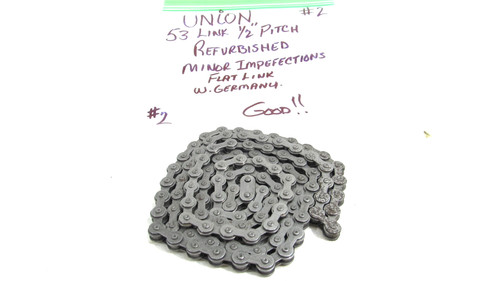 UNION #2
53 LINK 1/2" PITCH
REFURBISHED
MINOR IMPEFECTIONS
FLAT LINK
W. GERMANY.
#2 GOOD!!